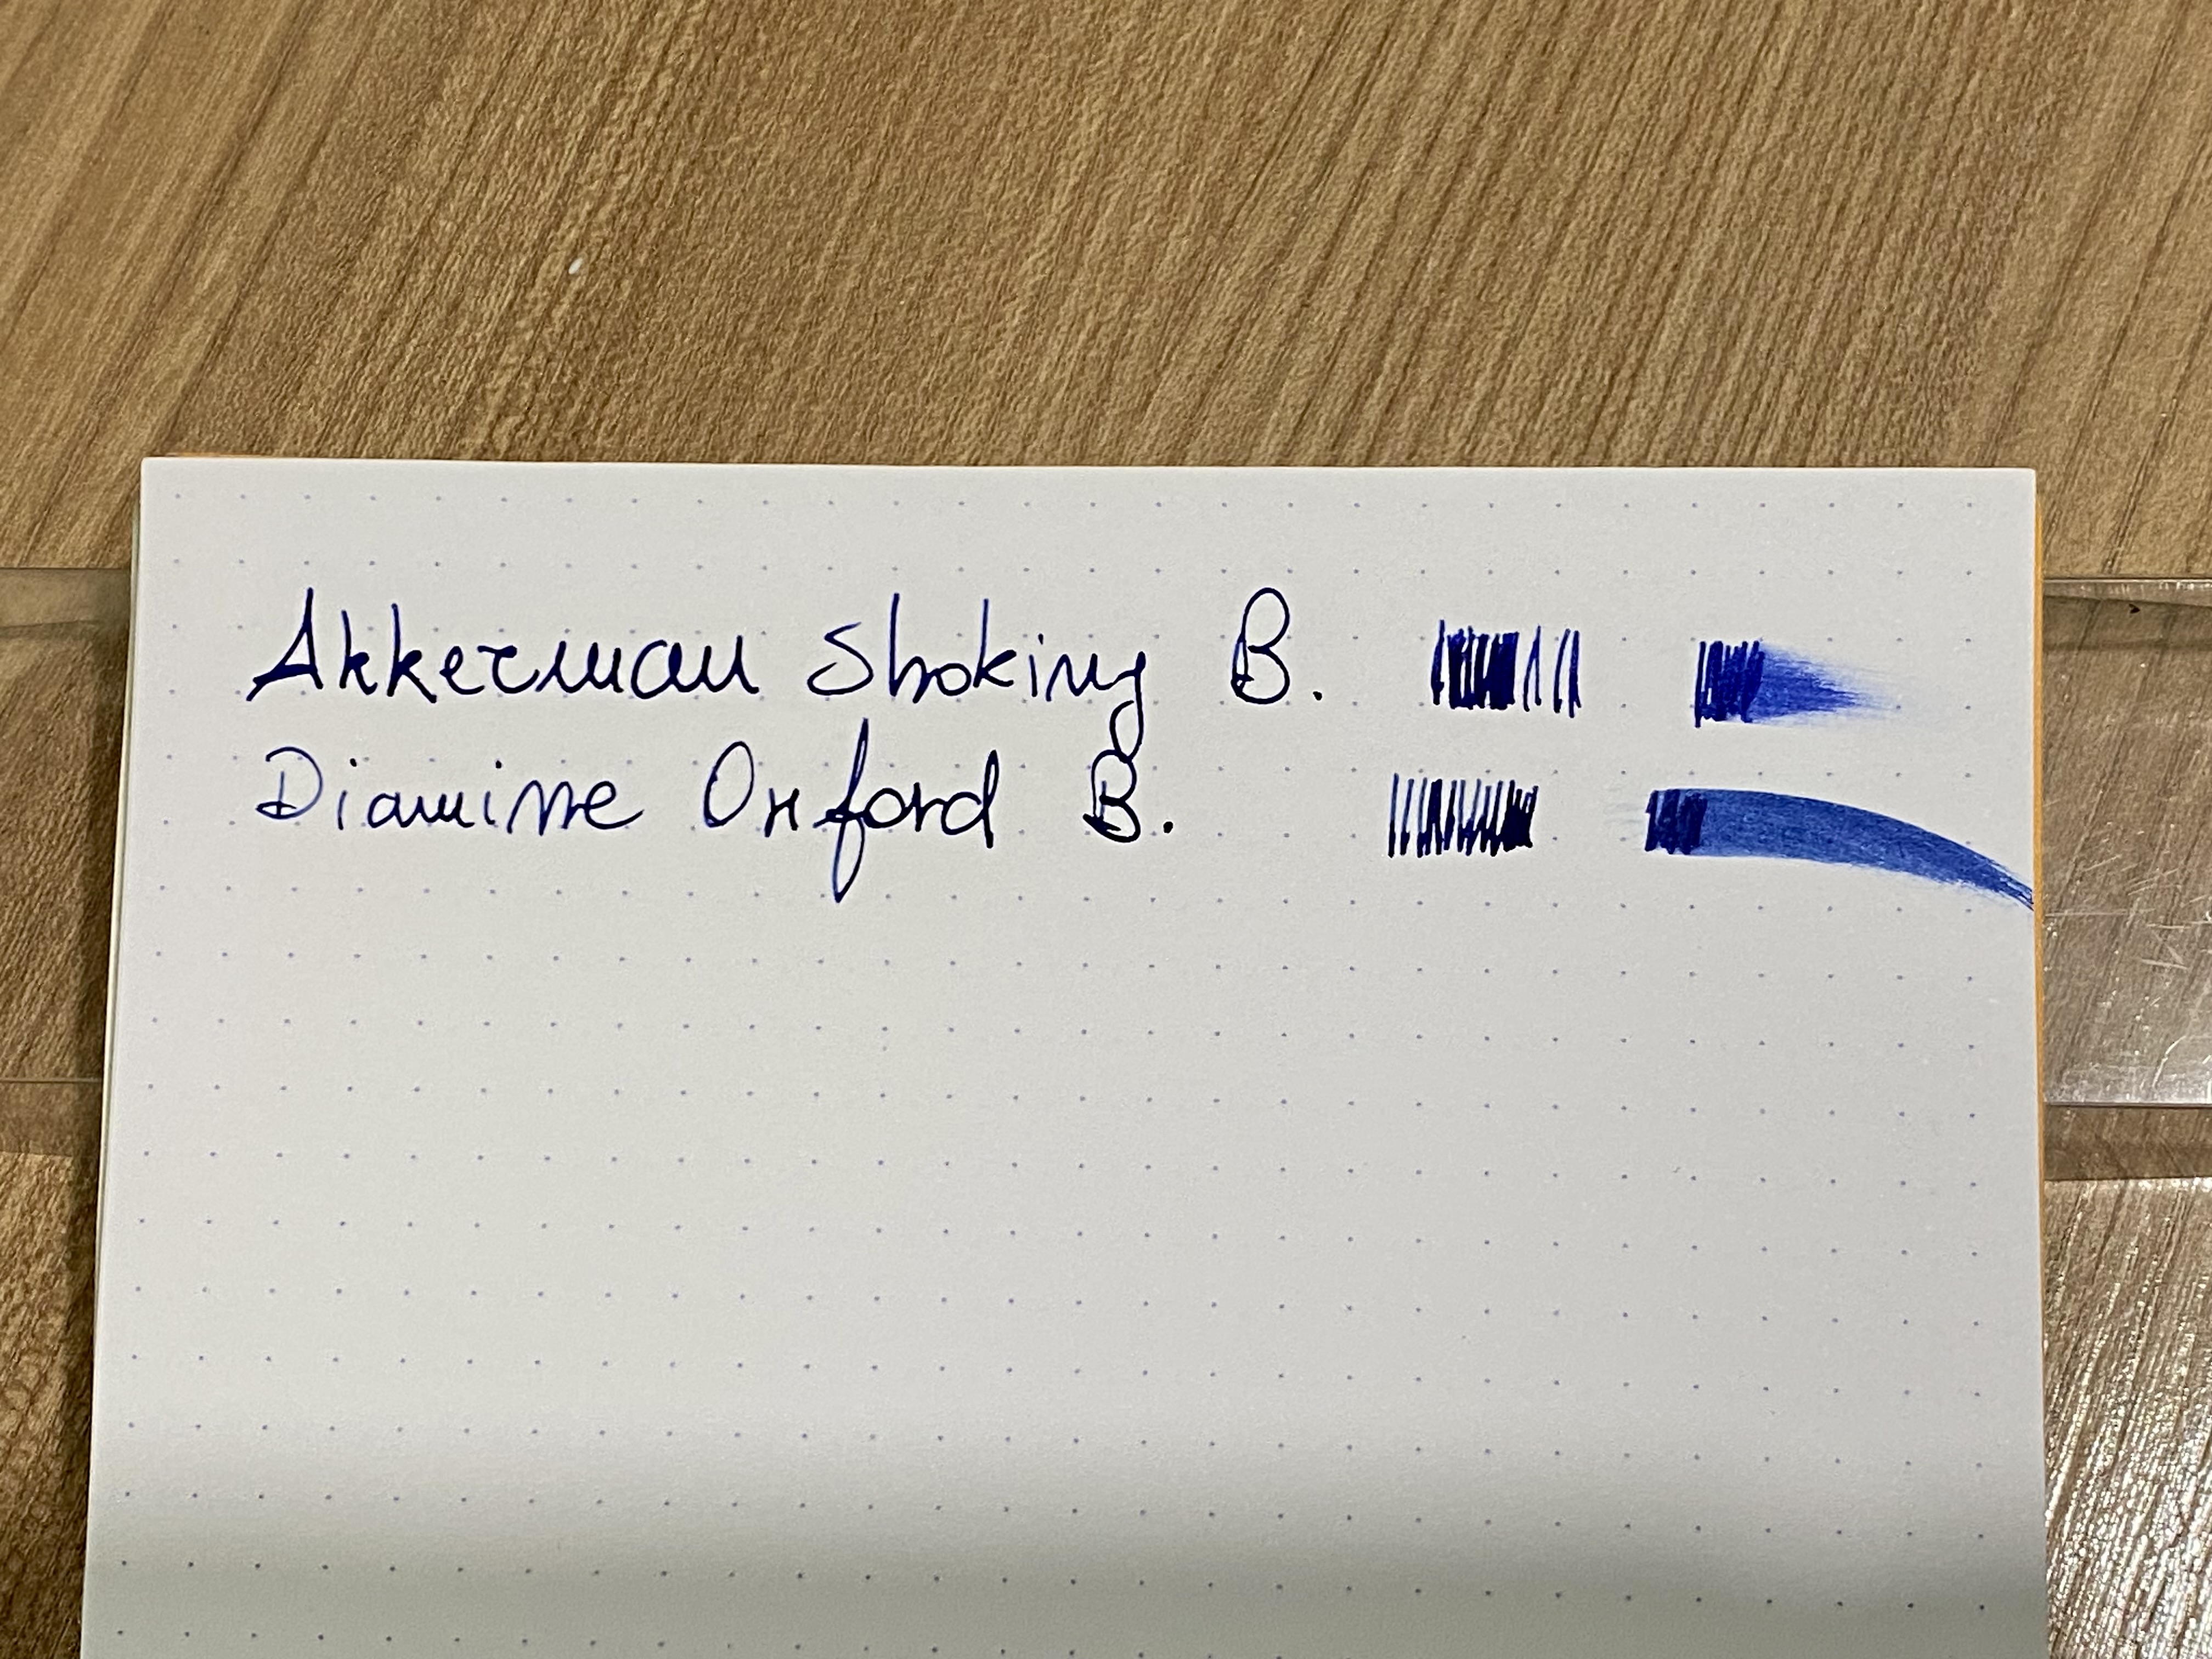 Akkerman Shoking B.
Diamine Oxford B.